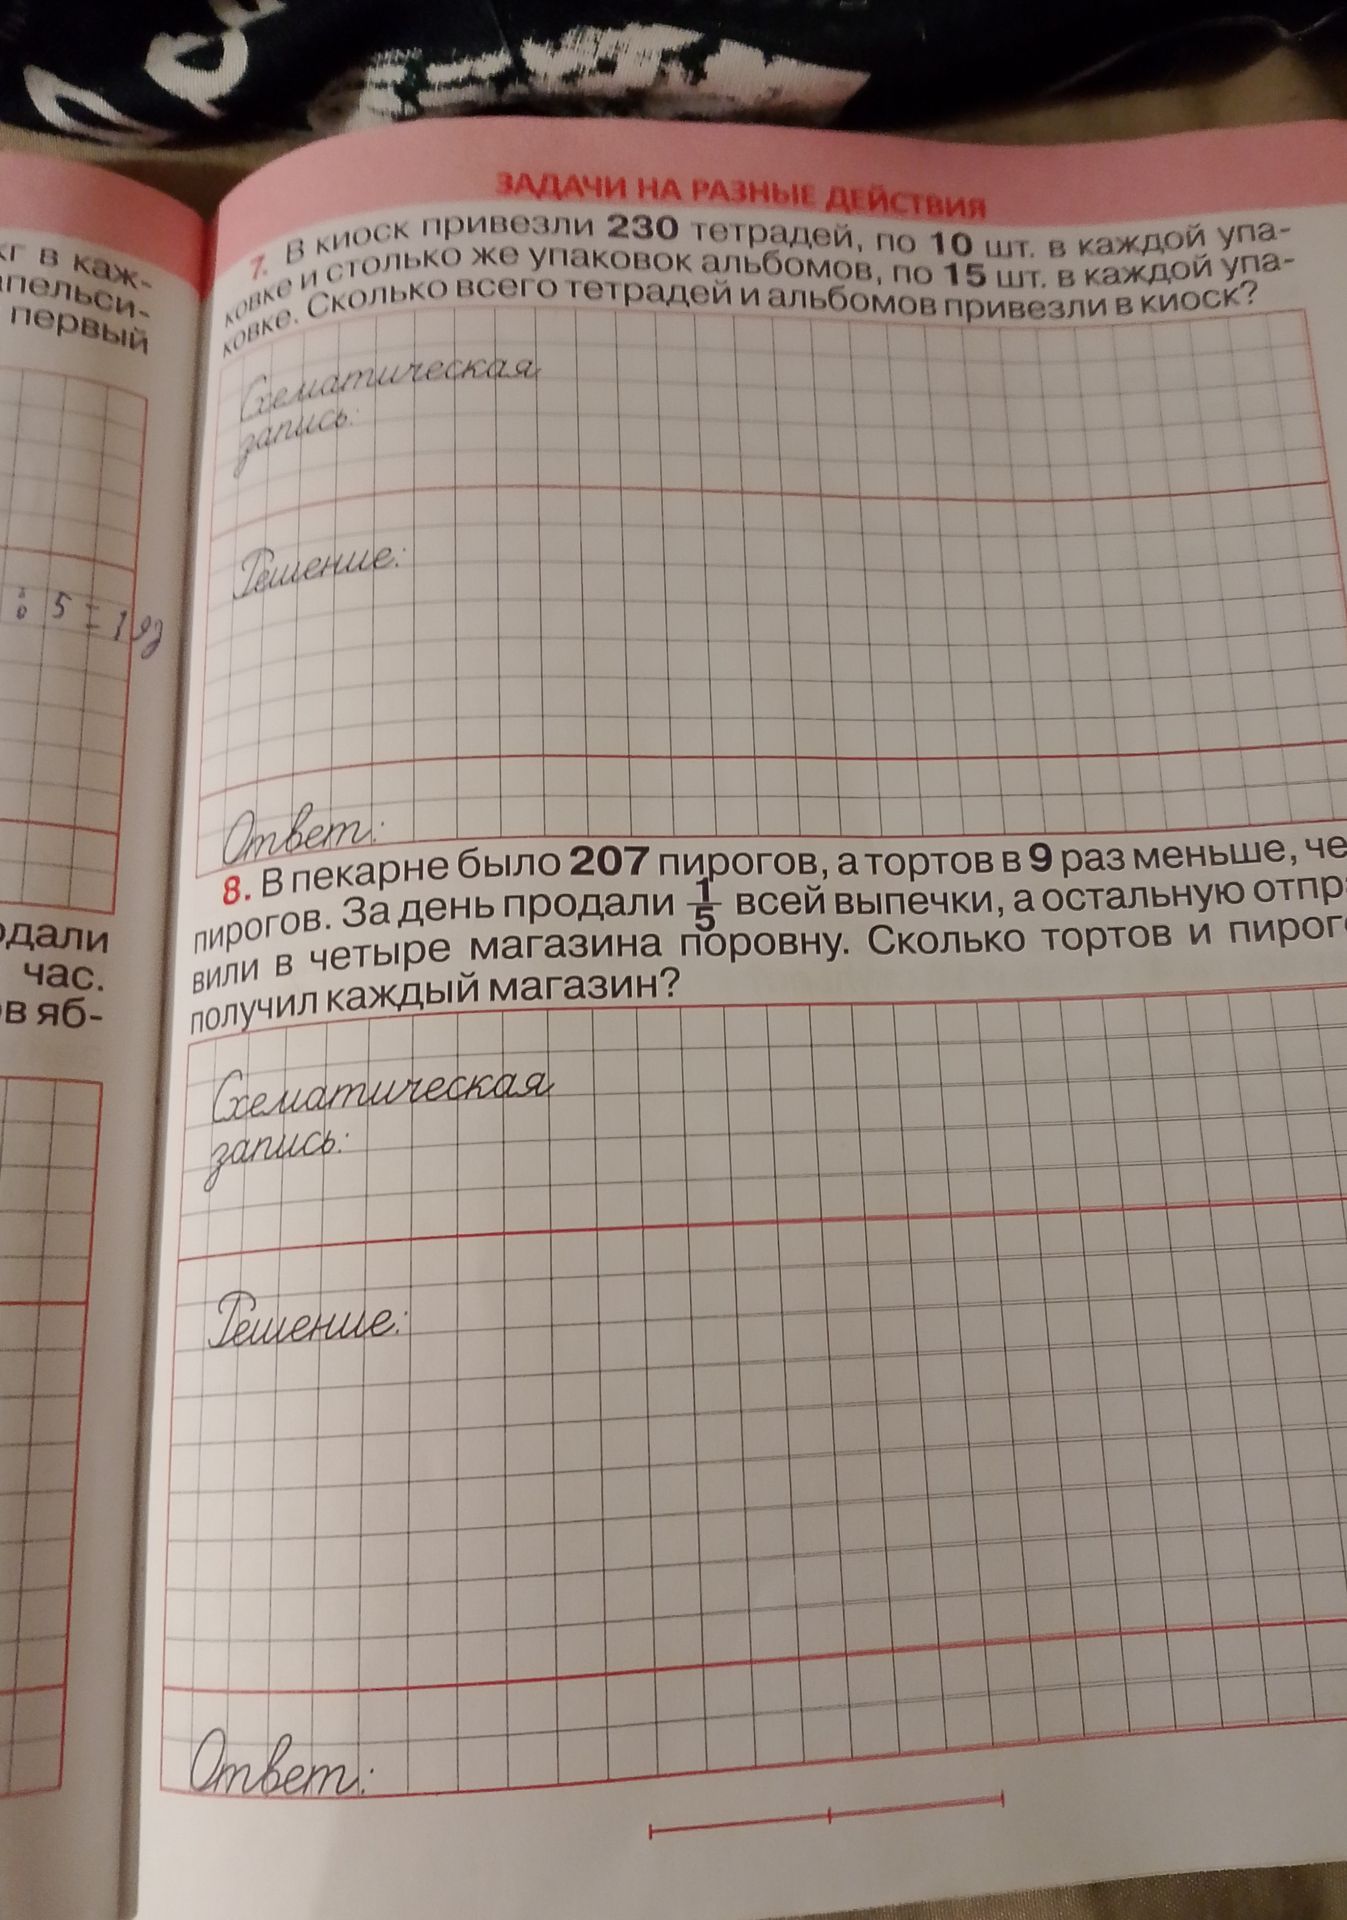 кг в каж-
пельси-
первый
: 5 = 1
одали
час.
ов яб-
ЗАДАЧИ НА РАЗНЫЕ ДЕЙСТВИЯ
7. В киоск привезли 230 тетрадей, по 10 шт. в каждой упа-
ковке и столько же упаковок альбомов, по 15 шт. в каждой упа-
ковке. Сколько всего тетрадей и альбомов привезли в киоск?
Схематическая
запись:
Решение:
Ответ:
8. В пекарне было 207 пирогов, а тортов в 9 раз меньше, че
пирогов. За день продали 1/5 всей выпечки, а остальную отпра
вили в четыре магазина поровну. Сколько тортов и пирог
получил каждый магазин?
Схематическая
запись:
Решение:
Ответ: